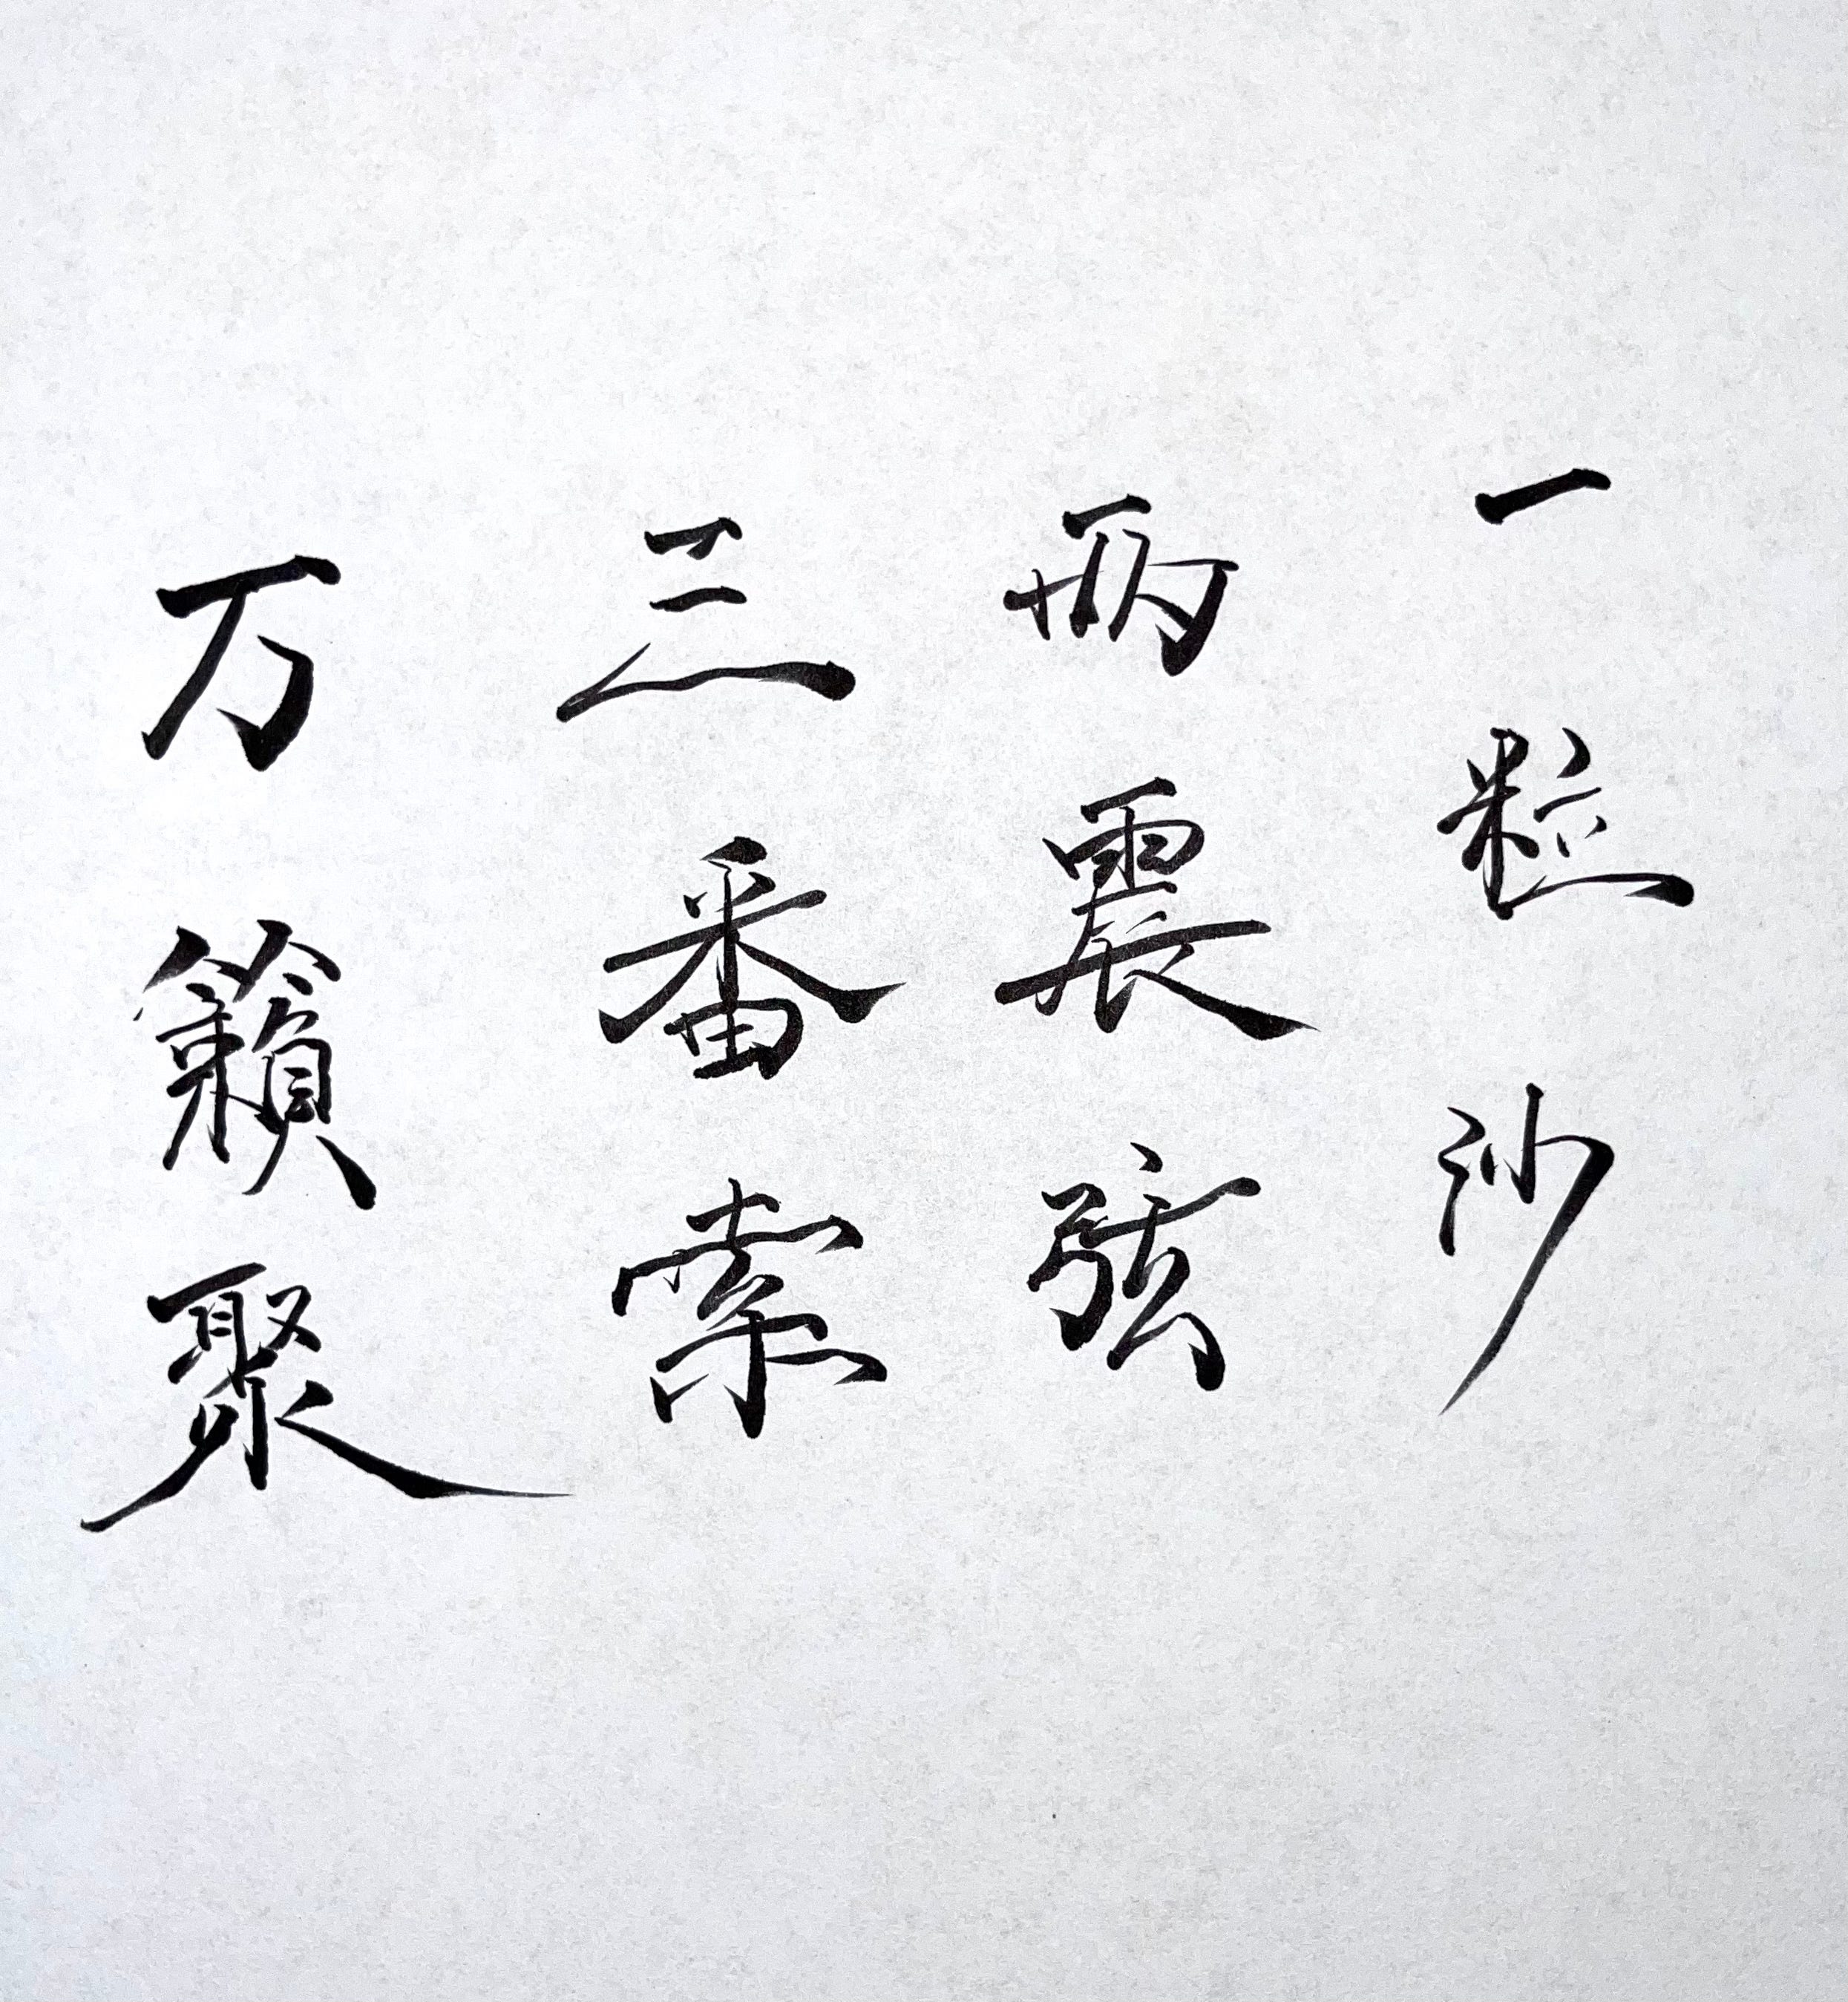 一粒沙
兩震弦
三番索
万籟聚